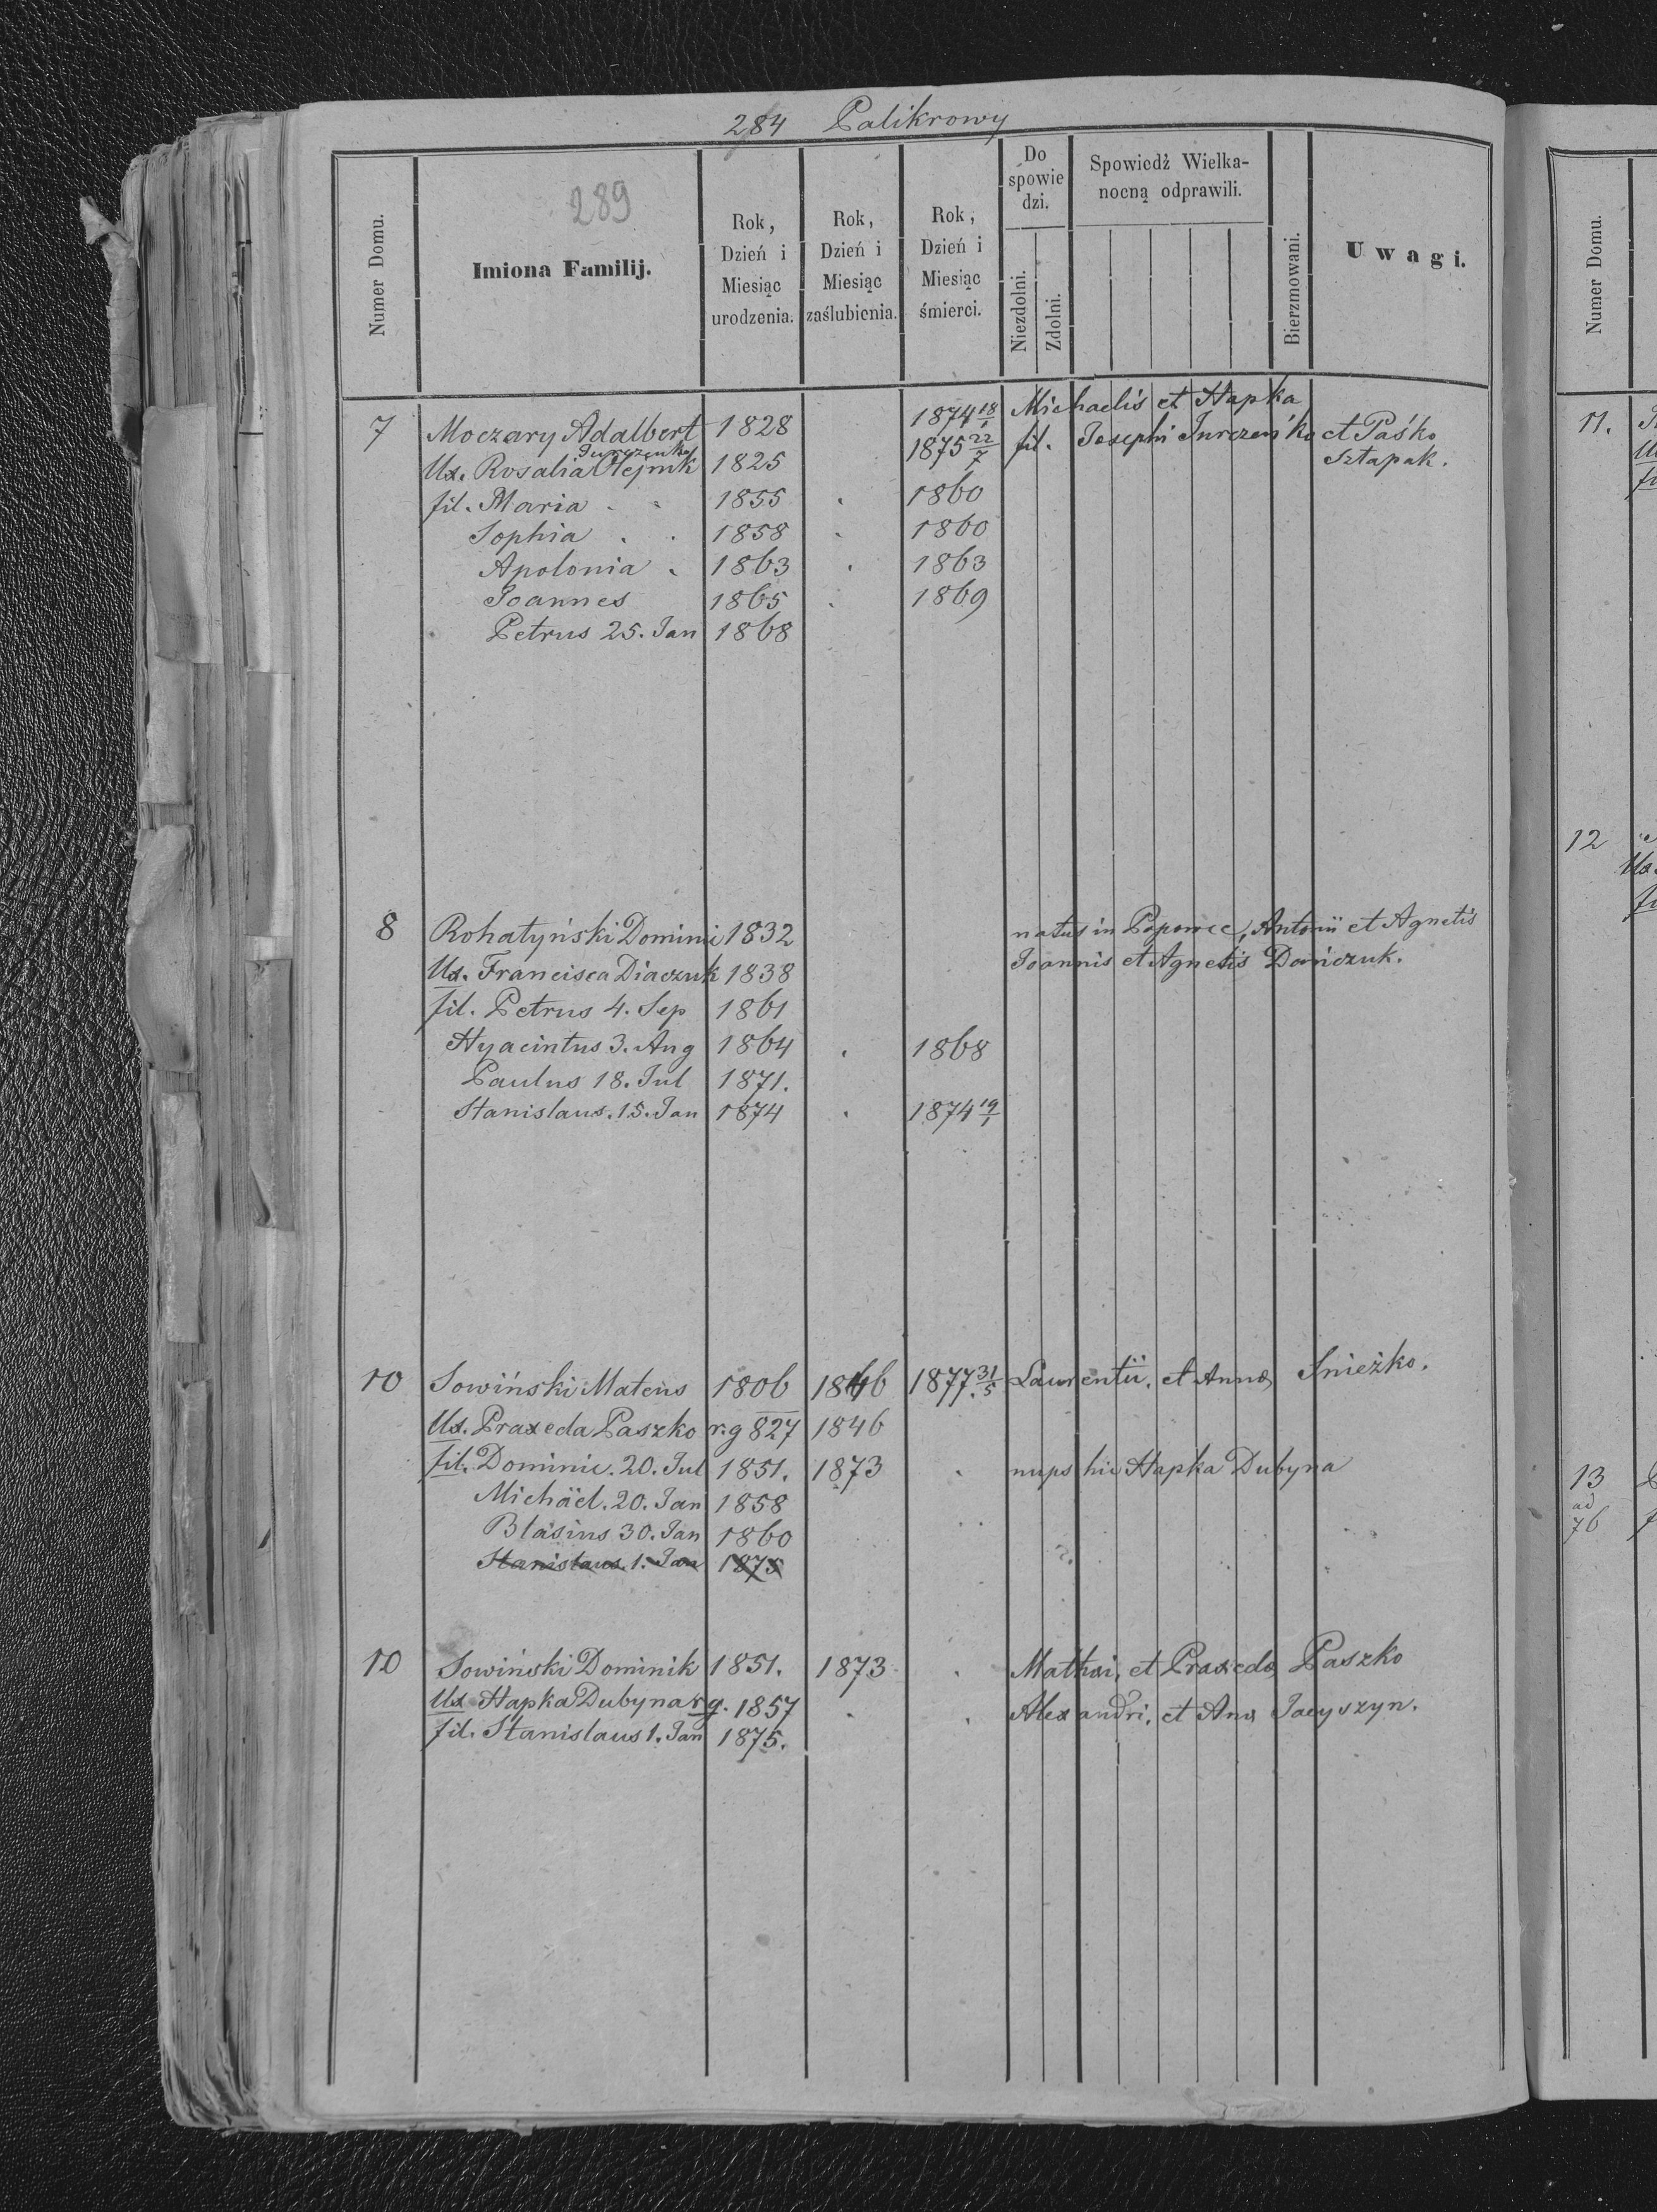 284 Palikrowy
289
Numer Domu.
Imiona Familij.
Rok, Dzień i Miesiąc urodzenia.
Rok, Dzień i Miesiąc zaślubienia.
Rok, Dzień i Miesiąc śmierci.
Do spowie dzi.
Niezdolni.
Zdolni.
Spowiedź Wielka-
nocną odprawili.
Bierzmowani.
Uwagi.
7 Moczary Adalbert 1828 1874 18/1 Michaelis et Hapka
Jurczenko
Ux. Rosalia Olejnik 1825 1875 22/7 fil. Josephi Jurczeńko et Paśko
Sztapak.
fil. Maria . . 1855 . 1860
Sophia . . 1858 . 1860
Apolonia . 1863 . 1863
Joannes 1865 . 1869
Petrus 25. Jan 1868
8 Rohatyński Domini 1832 natus in Popowce, Antonii et Agnetis
Ux. Francisca Diaczuk 1838 Joannis et Agnetis Daniczuk.
fil. Petrus 4. Sep 1861
Hyacintus 3. Aug 1864 . 1868
Paulus 18. Jul 1871.
Stanislaus. 15. Jan 1874 . 1874 19/1
10 Sowiński Mateus 1806 1846 1877. 31/5 Laurentii, et Anna Snieżko.
Ux. Praxeda Paszko r.g 827 1846
fil. Dominic. 20. Jul 1851. 1873 . nups hic Hapka Dubyna
Michäel. 20. Jan 1858
Blasius 30. Jan 1860
Stanislaus. 1. Jan 1875
10 Sowiński Dominik 1851. 1873 . Mathæi, et Praxeda Paszko
Ux Hapka Dubyna r.g. 1857 . . Alexandri, et Ana Jacyszyn.
fil. Stanislaus 1. Jan 1875.
Numer Domu.
11.
12
Ux.
13
ad
76